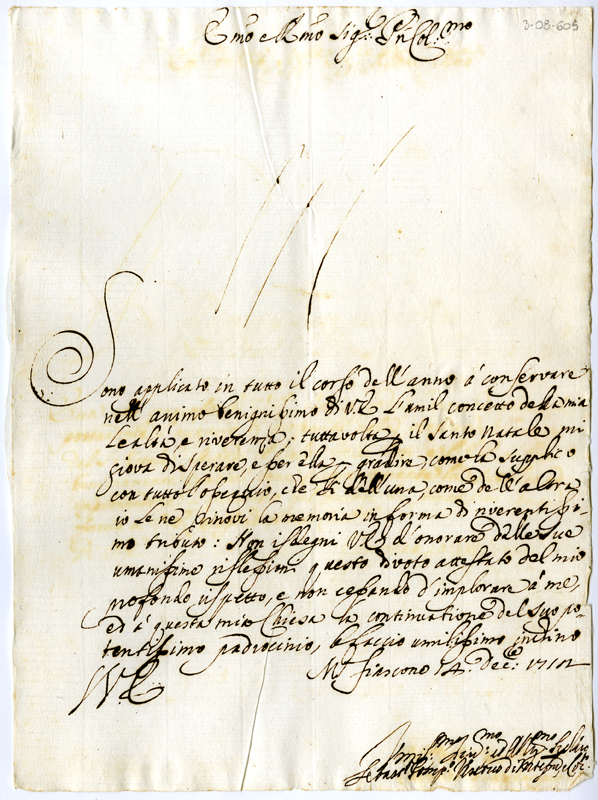 3-08-605
Emo e Rmo Sig.r Pn Col.mo
Sono applicato in tutto il corso dell'anno á conservare
nell'animo benignissimo di VE l'umil concetto della mia
Lealtá e riverenza; tuttavolta il Santo Natale mi
giova di sperare, e per ella gradire, come la supplico
con tutto l'ossequio, che dell'una, come dell'altra
io Le ne rinovi la memoria in forma di riverentissi-
mo tributo: Non isdegni VE d'onorare delle sue
umanissime riflessioni questo divoto attestato del mio
profondo rispetto, e non cessando d'implorare á me,
ed á questa mia Chiesa la continuatione del suo po-
tentissimo padrocinio, le faccio umilissimo inchino
VE
M. Fiascone 14 Dec.e